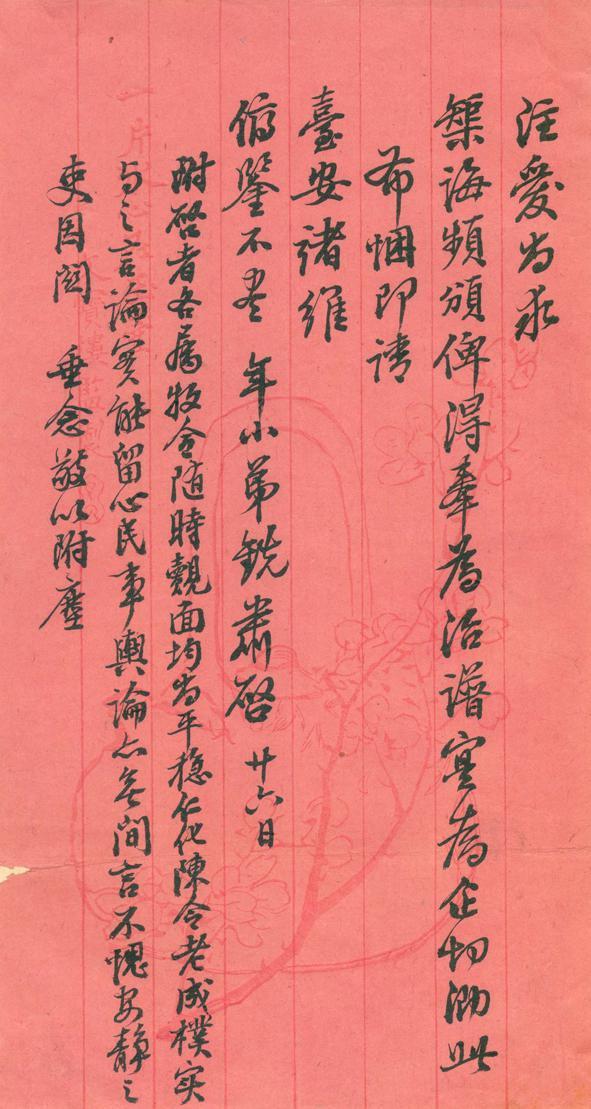 注愛尚求
榘誨頻頒俾得奉為治譜寔為企切泐此
布悃即請
臺安諸維
俯鑒不盡 年小弟銑肅啓 廿六日
附啓者各屬牧令隨時覿面均尚平穩仁化陳令老成樸实
与之言論实能留心民事輿論亦无間言不愧安靜之
吏因関 垂念敬以附塵